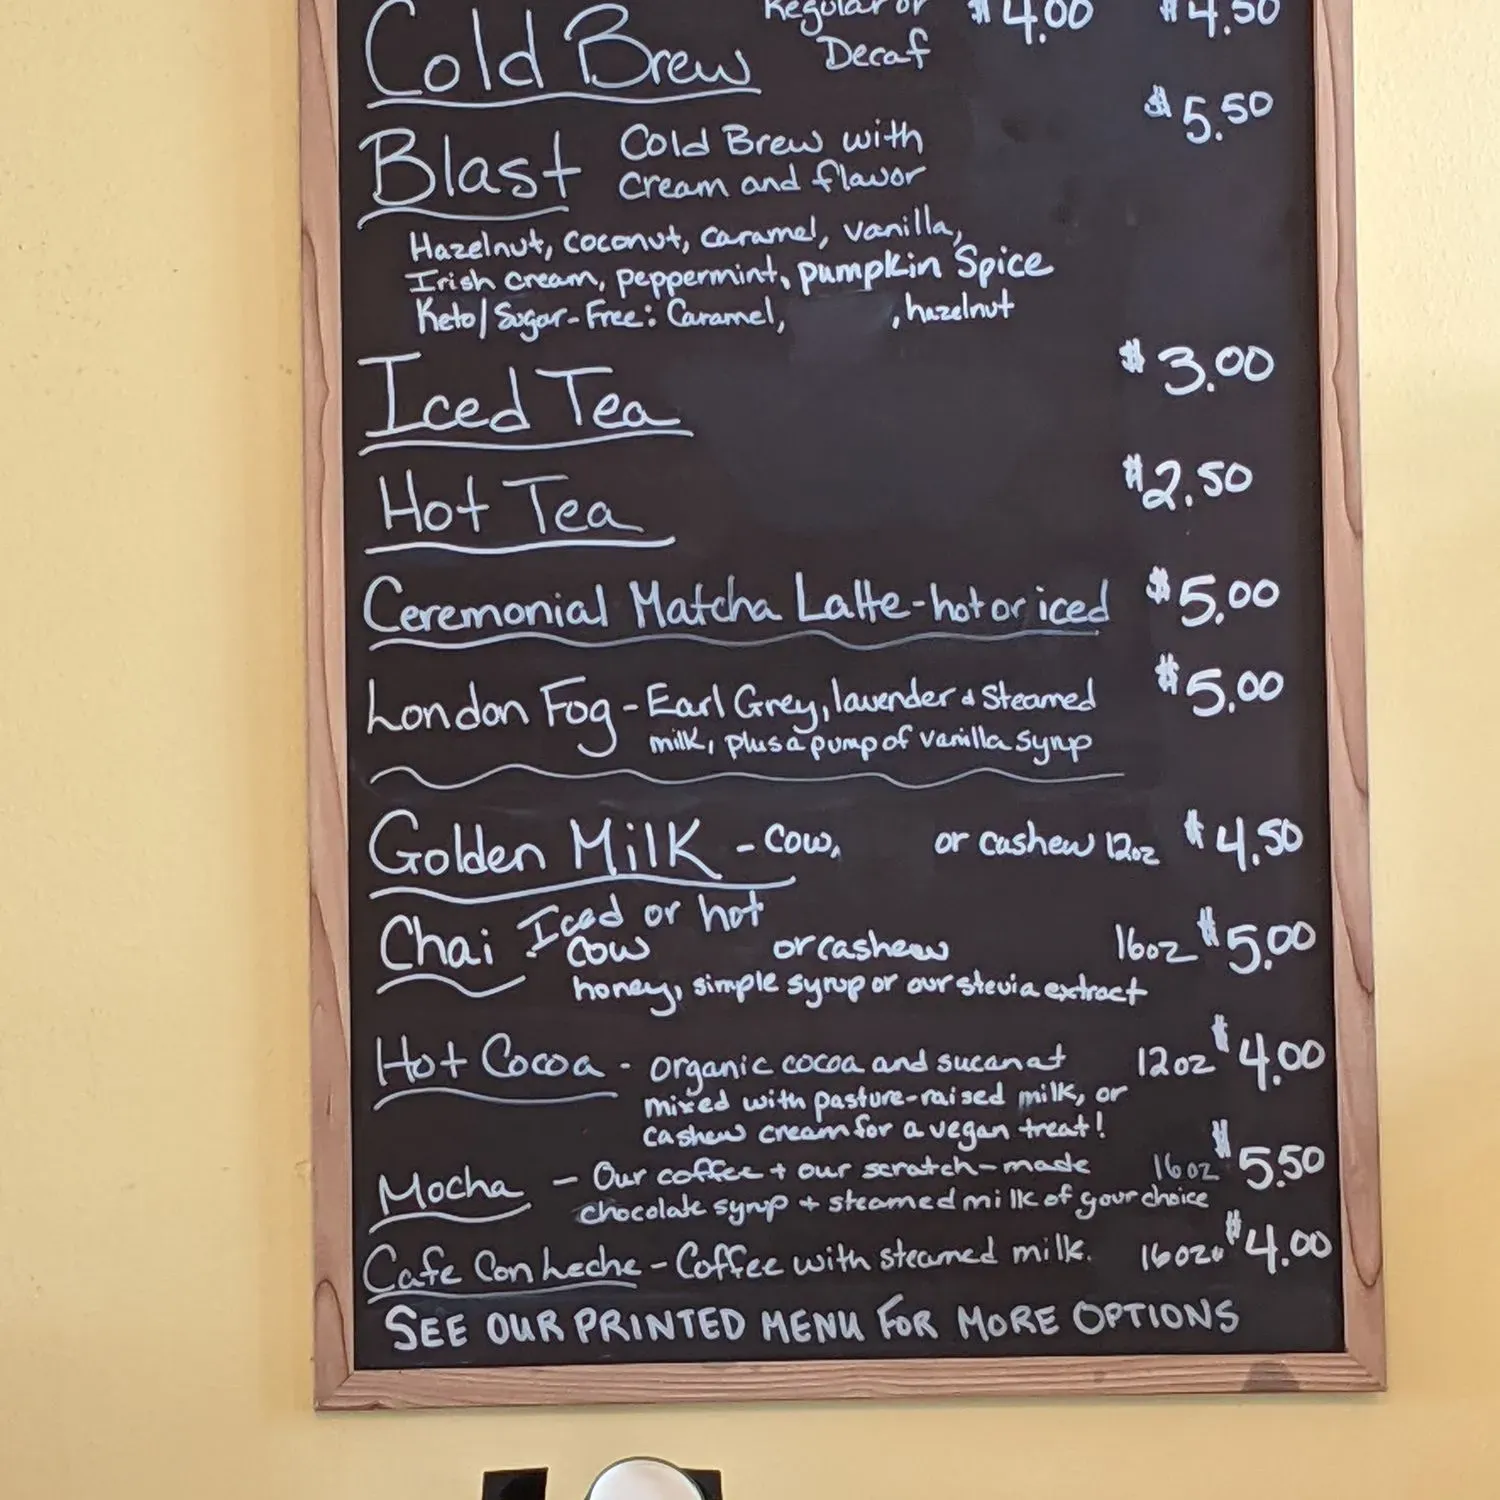 Cold Brew Regular or $4.00 $4.50
Decaf
Blast Cold Brew with $5.50
cream and flavor
Hazelnut, coconut, caramel, vanilla,
Irish cream, peppermint, pumpkin Spice
Keto/Sugar-Free: Caramel, , hazelnut
Iced Tea $3.00
Hot Tea $2.50
Ceremonial Matcha Latte-hot or iced $5.00
London Fog - Earl Grey, lavender & Steamed $5.00
milk, plus a pump of vanilla syrup
Golden Milk - cow, or cashew 12oz $4.50
Chai Iced or hot
cow or cashew 16oz $5.00
honey, simple syrup or our stevia extract
Hot Cocoa - organic cocoa and sucanat 12oz $4.00
mixed with pasture-raised milk, or
cashew cream for a vegan treat!
Mocha - Our coffee + our scratch-made 16oz $5.50
chocolate syrup + steamed milk of your choice
Cafe Con Leche - Coffee with steamed milk. 16oz $4.00
SEE OUR PRINTED MENU FOR MORE OPTIONS